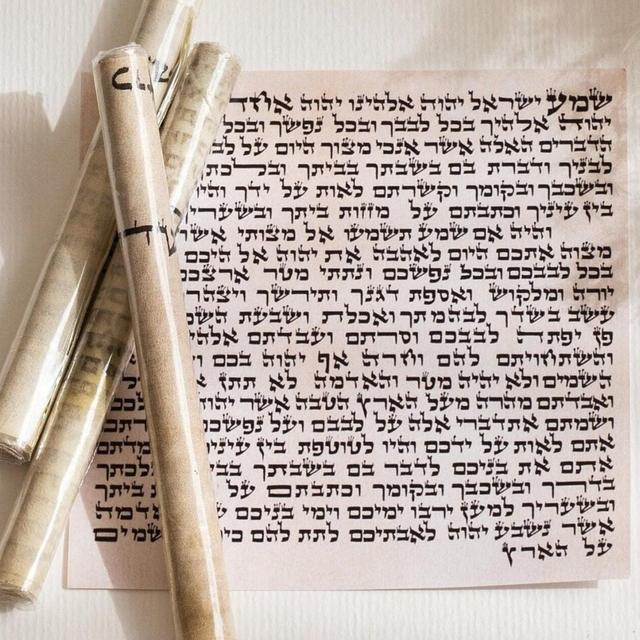 שמע ישראל יהוה אלהינו יהוה אחד
יהוה אלהיך בכל לבבך ובכל נפשך ובכל
הדברים האלה אשר אנכי מצוך היום על
לבניך ודברת בם בשבתך בביתך
ובשכבך ובקומך וקשרתם לאות על ידך והיו
בין עיניך וכתבתם על מזזות ביתך ובשעריך
והיה אם שמע תשמעו אל מצותי אשר
מצוה אתכם היום לאהבה את יהוה אלהיכם
בכל לבבכם ובכל נפשכם ונתתי מטר ארצכם
יורה ומלקוש ואספת דגנך ותירשך ויצהרך
עשב בשדך לבהמתך ואכלת ושבעת
פן יפתה לבבכם וסרתם ועבדתם
והשתחויתם להם וחרה אף יהוה בכם
השמים ולא יהיה מטר והאדמה לא תתן
ואבדתם מהרה מעל הארץ הטבה אשר יהוה
ושמתם את דברי אלה על לבבכם ועל נפשכם
אתם לאות על ידכם והיו לטוטפת בין
אתם את בניכם לדבר בם בשבתך
בדרך ובשכבך ובקומך וכתבתם על ביתך
ובשעריך למען ירבו ימיכם וימי בניכם
אשר נשבע יהוה לאבתיכם לתת להם
על הארץ